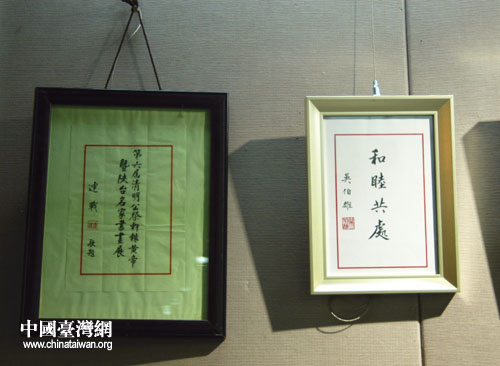 第六届清明公祭軒轅黄帝
暨陝台名家書畫展
連戰
敬題
和睦共處
吳伯雄
中國臺灣網
www.chinataiwan.org